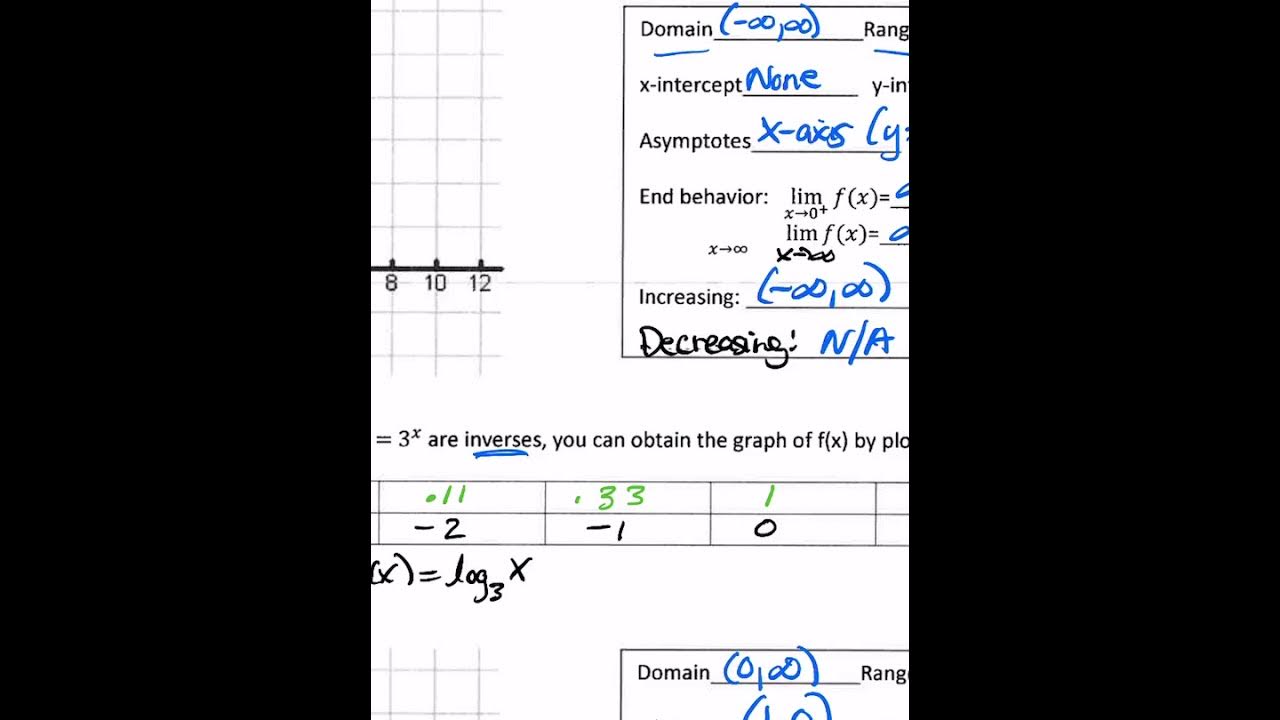 Domain (-∞,∞) Rang
x-intercept None y-in
Asymptotes x-axis (y=
End behavior: lim f(x)=
x→0⁺
lim f(x)=
x→∞ x→∞
8 10 12
Increasing: (-∞,∞)
Decreasing: N/A
= 3ˣ are inverses, you can obtain the graph of f(x) by plo
.11 .33 1
-2 -1 0
(x) = log₃ x
Domain (0,∞) Rang
(1,0)